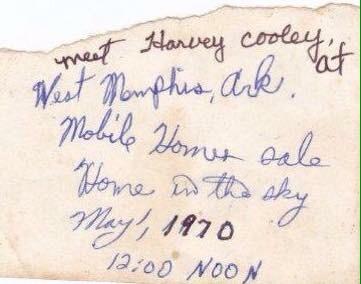 meet Harvey cooley, at
West Memphis, Ark.
Mobile Homes sale
Home in the sky
May 1, 1970
12:00 NOON